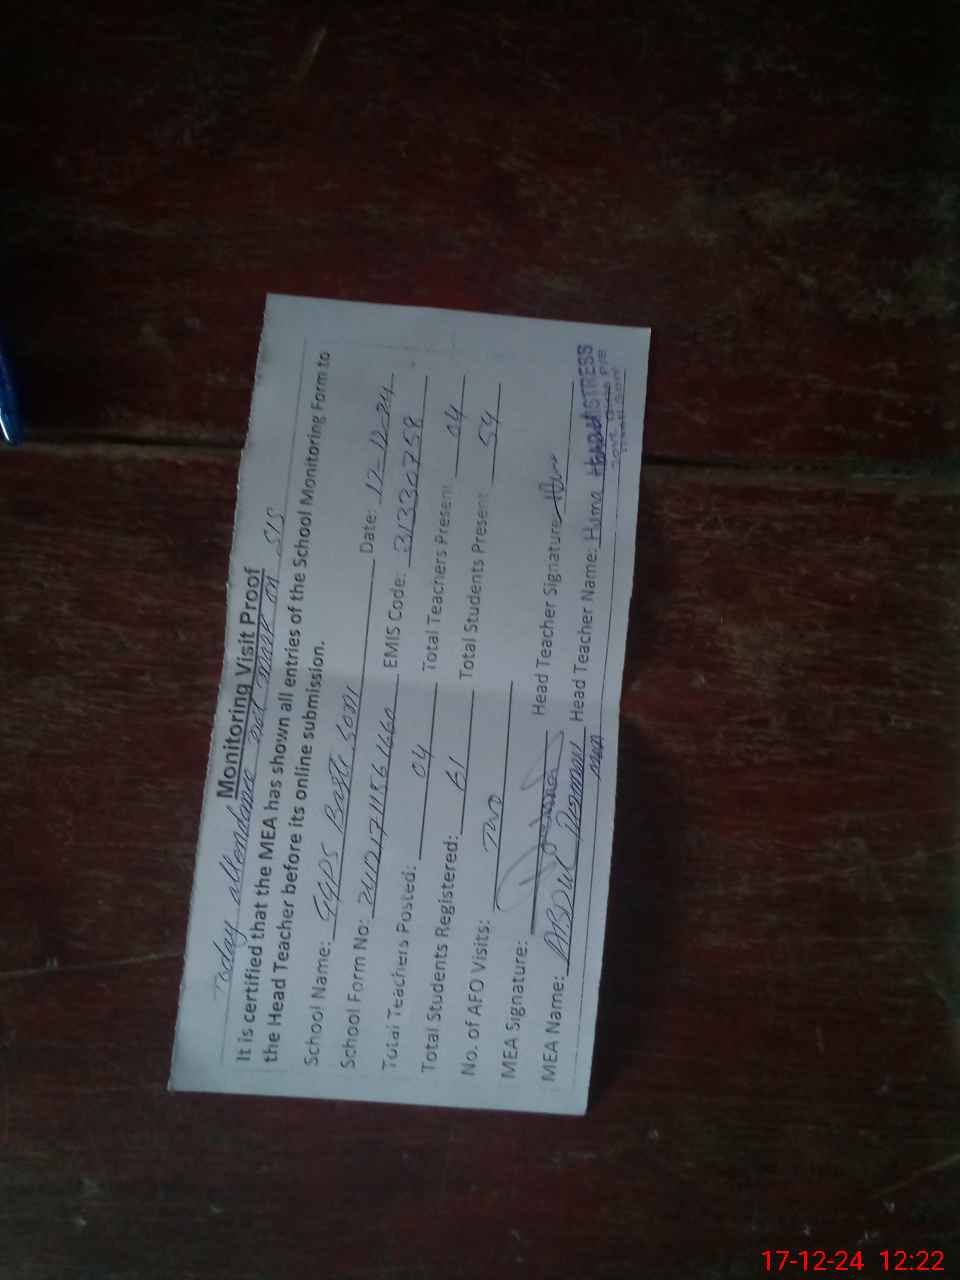 Monitoring Visit Proof
Today attendance not mark on SIS
It is certified that the MEA has shown all entries of the School Monitoring Form to
the Head Teacher before its online submission.
School Name: GGPS Basti Soni Date: 17-12-24
School Form No: EMIS Code: 31330758
Total Teachers Posted: 04 Total Teachers Present 04
Total Students Registered: 61 Total Students Present 54
No. of AFO Visits: Two
MEA Signature: Head Teacher Signature
MEA Name: ABDUL Rehman Head Teacher Name: Huma HEADMISTRESS
MEA
17-12-24 12:22